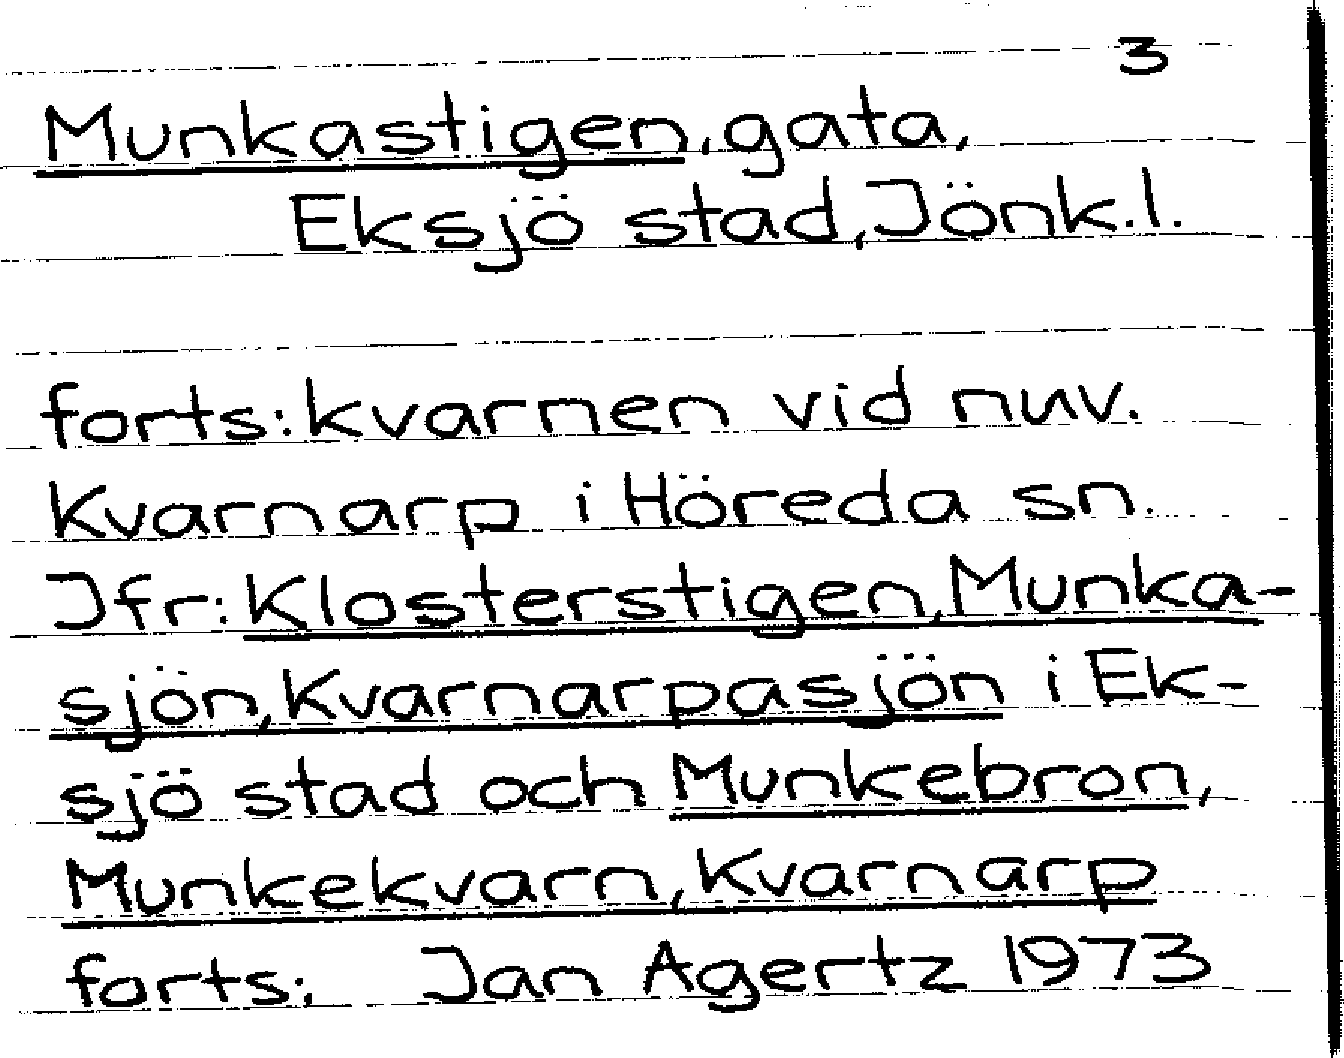 3
Munkastigen, gata,
Eksjö stad, Jönk.l.
forts: kvarnen vid nuv.
Kvarnarp i Höreda sn.
Jfr: Klosterstigen, Munka-
sjön, Kvarnarpasjön i Ek-
sjö stad och Munkebron,
Munkekvarn, Kvarnarp
forts: Jan Agertz 1973